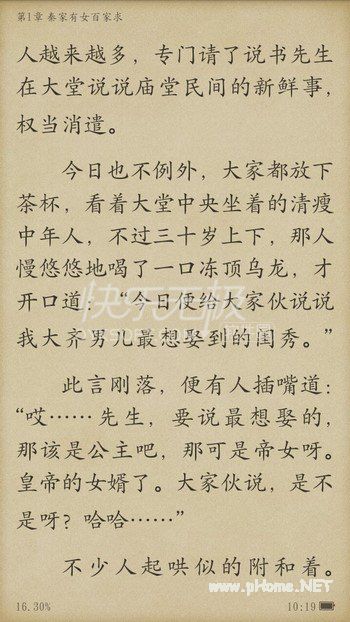 第1章 秦家有女百家求
人越来越多，专门请了说书先生
在大堂说说庙堂民间的新鲜事，
权当消遣。
今日也不例外，大家都放下
茶杯，看着大堂中央坐着的清瘦
中年人，不过三十岁上下，那人
慢悠悠地喝了一口冻顶乌龙，才
开口道：“今日便给大家伙说说
我大齐男儿最想娶到的闺秀。”
此言刚落，便有人插嘴道：
“哎……先生，要说最想娶的，
那该是公主吧，那可是帝女呀。
皇帝的女婿了。大家伙说，是不
是呀？哈哈……”
不少人起哄似的附和着。
www.pHome.NET
16.30%
10:19